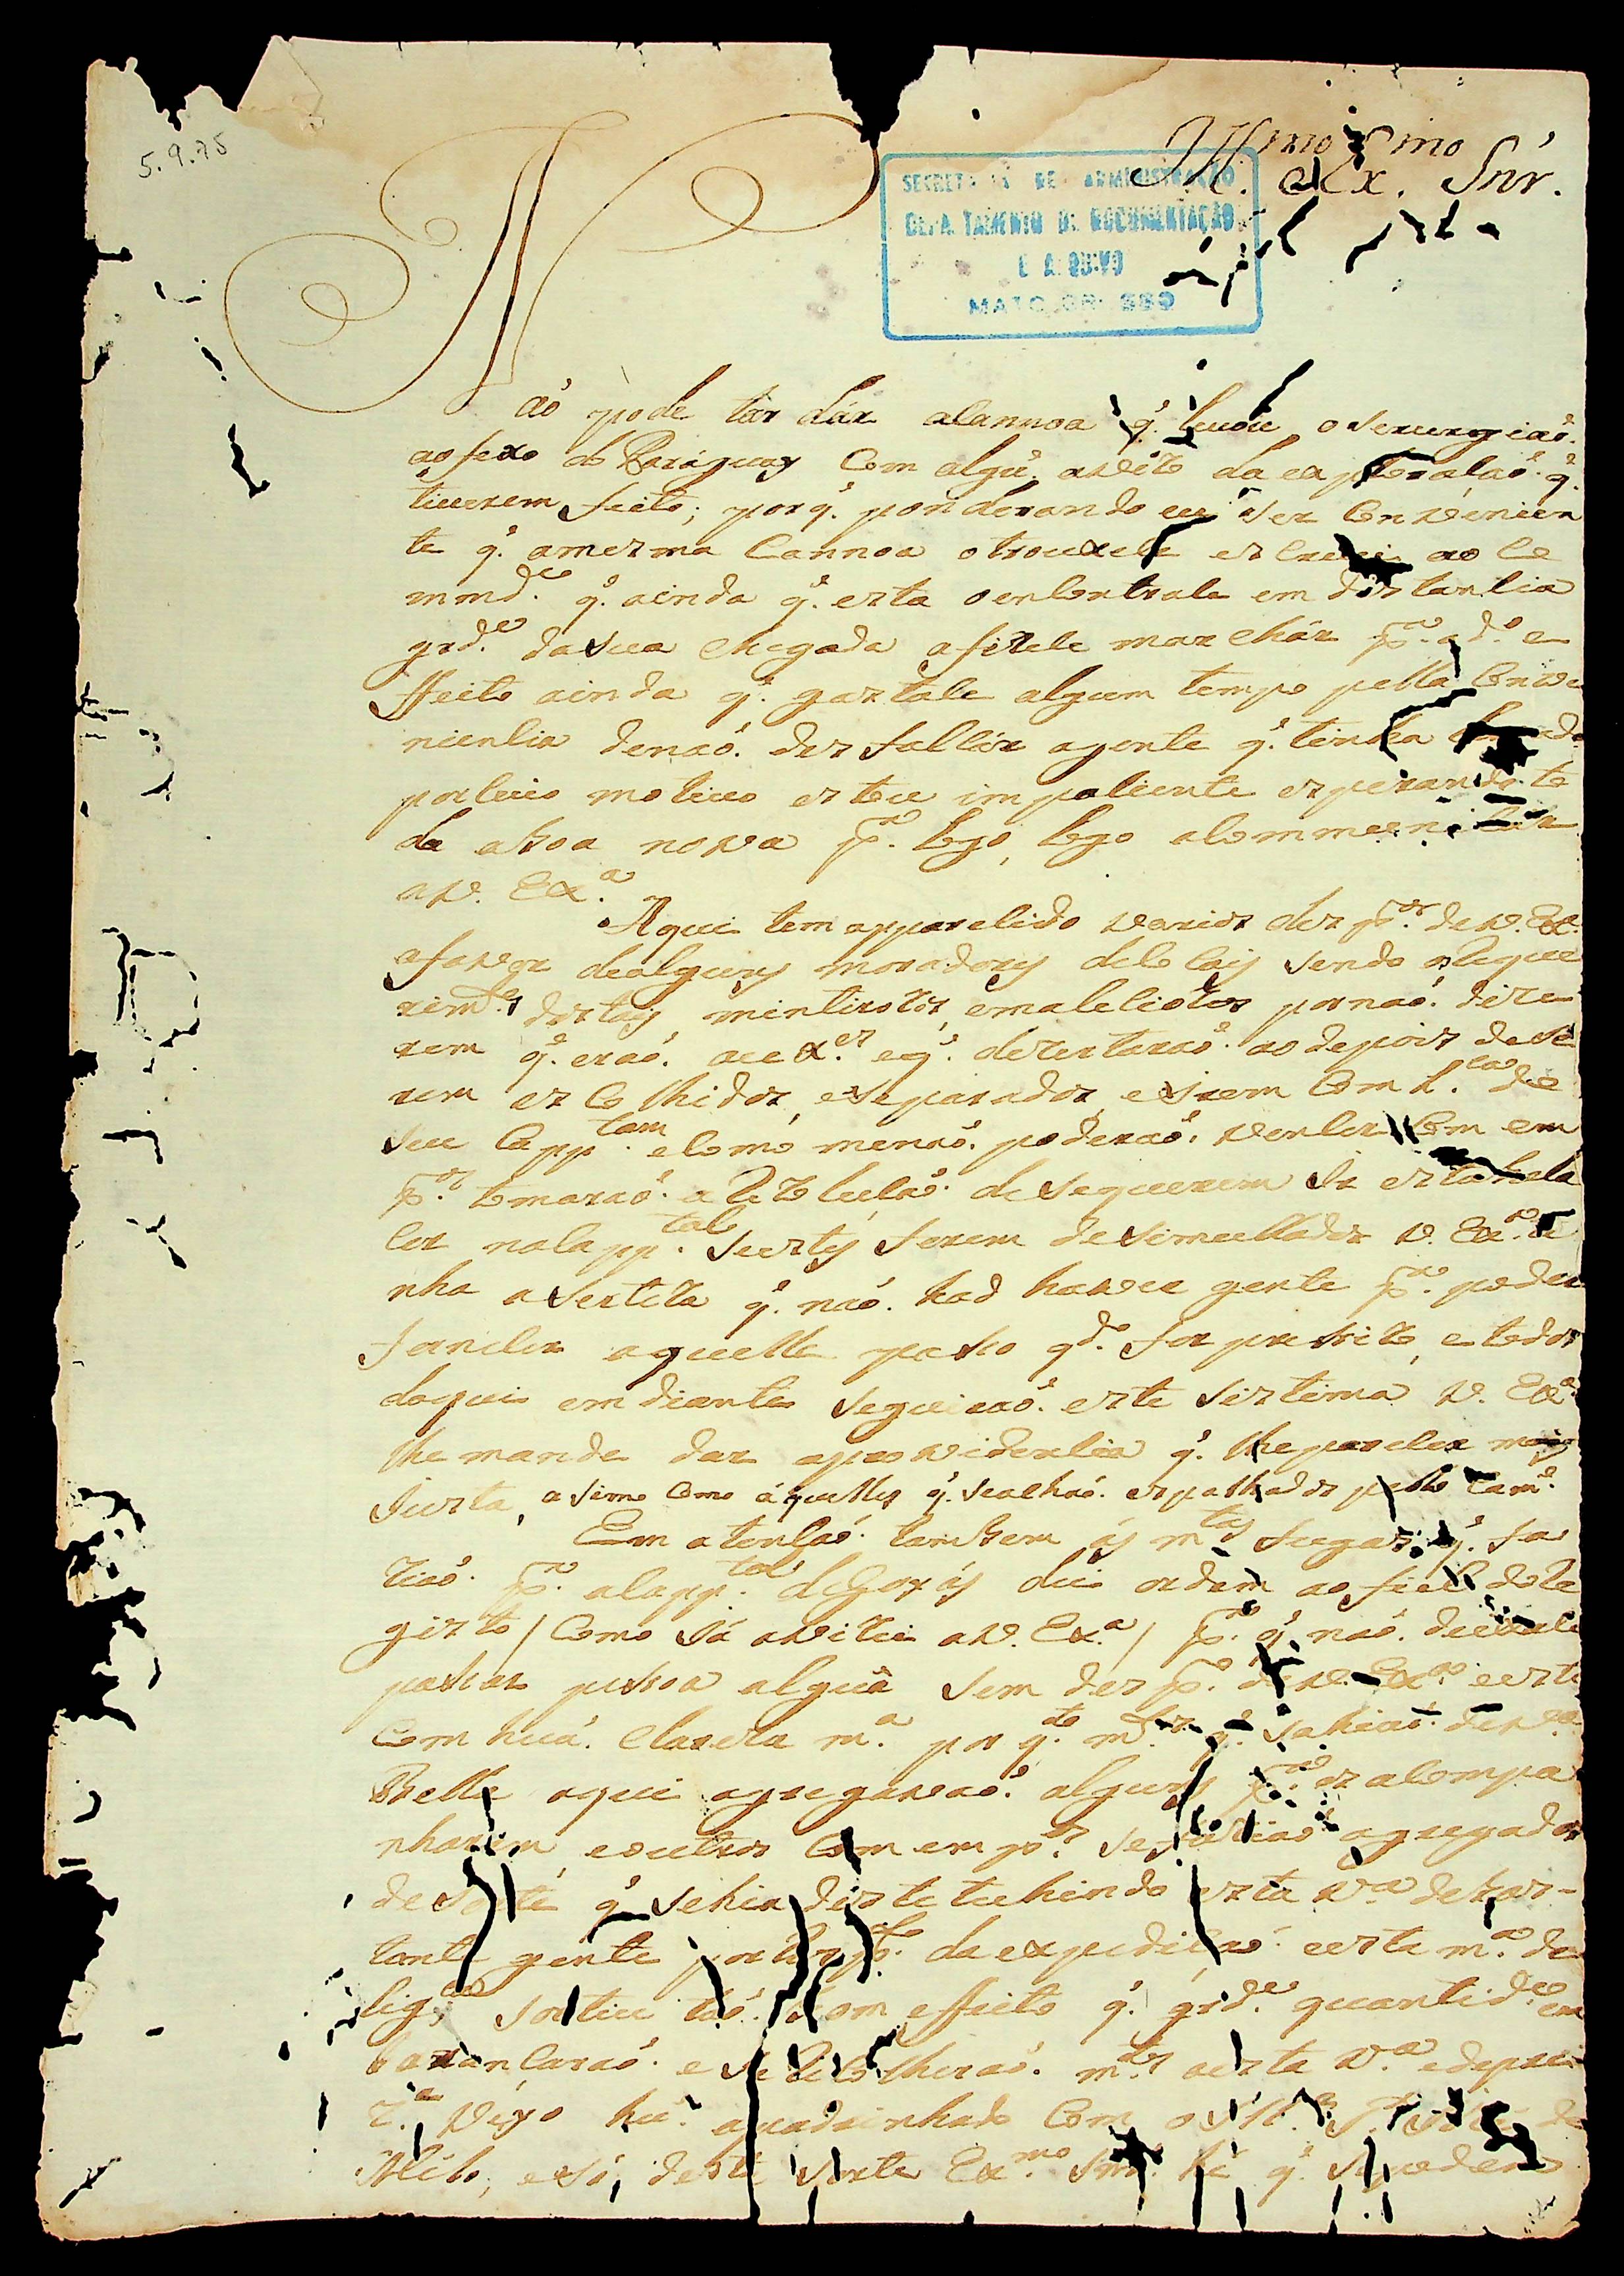 5.9.75
Illmo Exmo Snr.
SECRETARIA DE ADMINISTRAÇÃO
DEPARTAMENTO DE DOCUMENTAÇÃO
E ARQUIVO
MATO GROSSO
Naõ pode tardár a Cannoa q̃. levou o Serurgiaõ.
ao fexo do Paráguay Com algũ. avizo da exploraçaõ. q̃.
tiverem feito; por q̃. ponderando eu ser Convenien
te q̃. a mesma Cannoa o trouxese escrevi ao Co
mmd.e q̃. ainda q̃. esta o encontrace em distancia
grd.e da sua chegada a fizece marchár p.a o d.o e
ffeito ainda q̃. gastace algum tempo pella Conve
niencia de naõ. desfalcár a gente q̃. tinha
por cuio motivo estou impaciente esperando to
da a hora nova p.a logo, logo a Commuenicár
a V. Ex.a
Aqui tem apparecido varios desp.os de V. Ex.a
a favor de alguns moradores de Cocais sendo os Reque
rim.tos destas, mintirozos, e maliciozos por naõ. dize
rem q̃. eraõ. aux.es e q̃. dezertaraõ. ao depois de se
rem escolhidos, e separados, e virem Com L.ca de
seu Capp.tam e Como menaõ. poderaõ. vencer Com em
p.os tomaraõ. a Rezoluçaõ. de se quererem Ir estabele
cer na Capp.tal Se estes forem desimullados V. Ex.a te
nha a serteza q̃. naõ. had haver gente p.a poder
fornecer aquelle passo qd.o for presizo, e todos
daqui em diante seguiraõ. este sistema V. Ex.a
lhe mande dar a providencia q̃. lhe parecer mais
Justa, asimo Como áquelles q̃. se achaõ. espalhados pello Cam.o
Em atençaõ. tambem ás m.tas fugas q̃. fa
ziaõ. p.a a Capp.tal de Goyás dei ordem ao fiel do Re
gisto / Como Já avizei a V. Ex.a / p.a q̃. naõ. deixace
passar pessoa algũa sem desp.o de V. Ex.a e este
Com huã. Clareza m.a por q.to m.tos q̃. sahiaõ. de V.a
Bella aqui agregavaõ. alguns p.a os acompa
nharem e outros Com emp.os se faziaõ agregados
de sorte q̃ se hia destetuhindo esta V.a de bas-
tante gente por Cor p.a da expediçaõ. e esta m.a de
lig.ca sortiu taõ. bom effeito q̃. grd.e quantid.e em
barancaraõ. e se Recolheraõ. m.tos a esta V.a
Vejo hũ. aquadrinhado Com o
Mello, e só, desta sorte Ex.mo Snr. hé q̃. se poderá